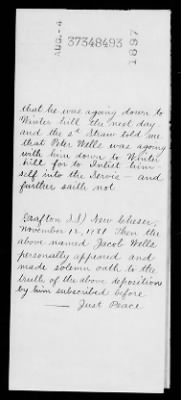 AUG.-4
37348493
1897
that he was agoing down to
Winter hill the next day
and the sd Straw told me
that Peter Wells was agoing
with him down to Winter
hill for to Inlist him
self into the Service — and
further saith not
Grafton SS) New Chester,
November 12, 1781 Then the
above named Jacob Wells
personally appeared and
made solemn oath to the
truth of the above deposition
by him subscribed before
Just Peace